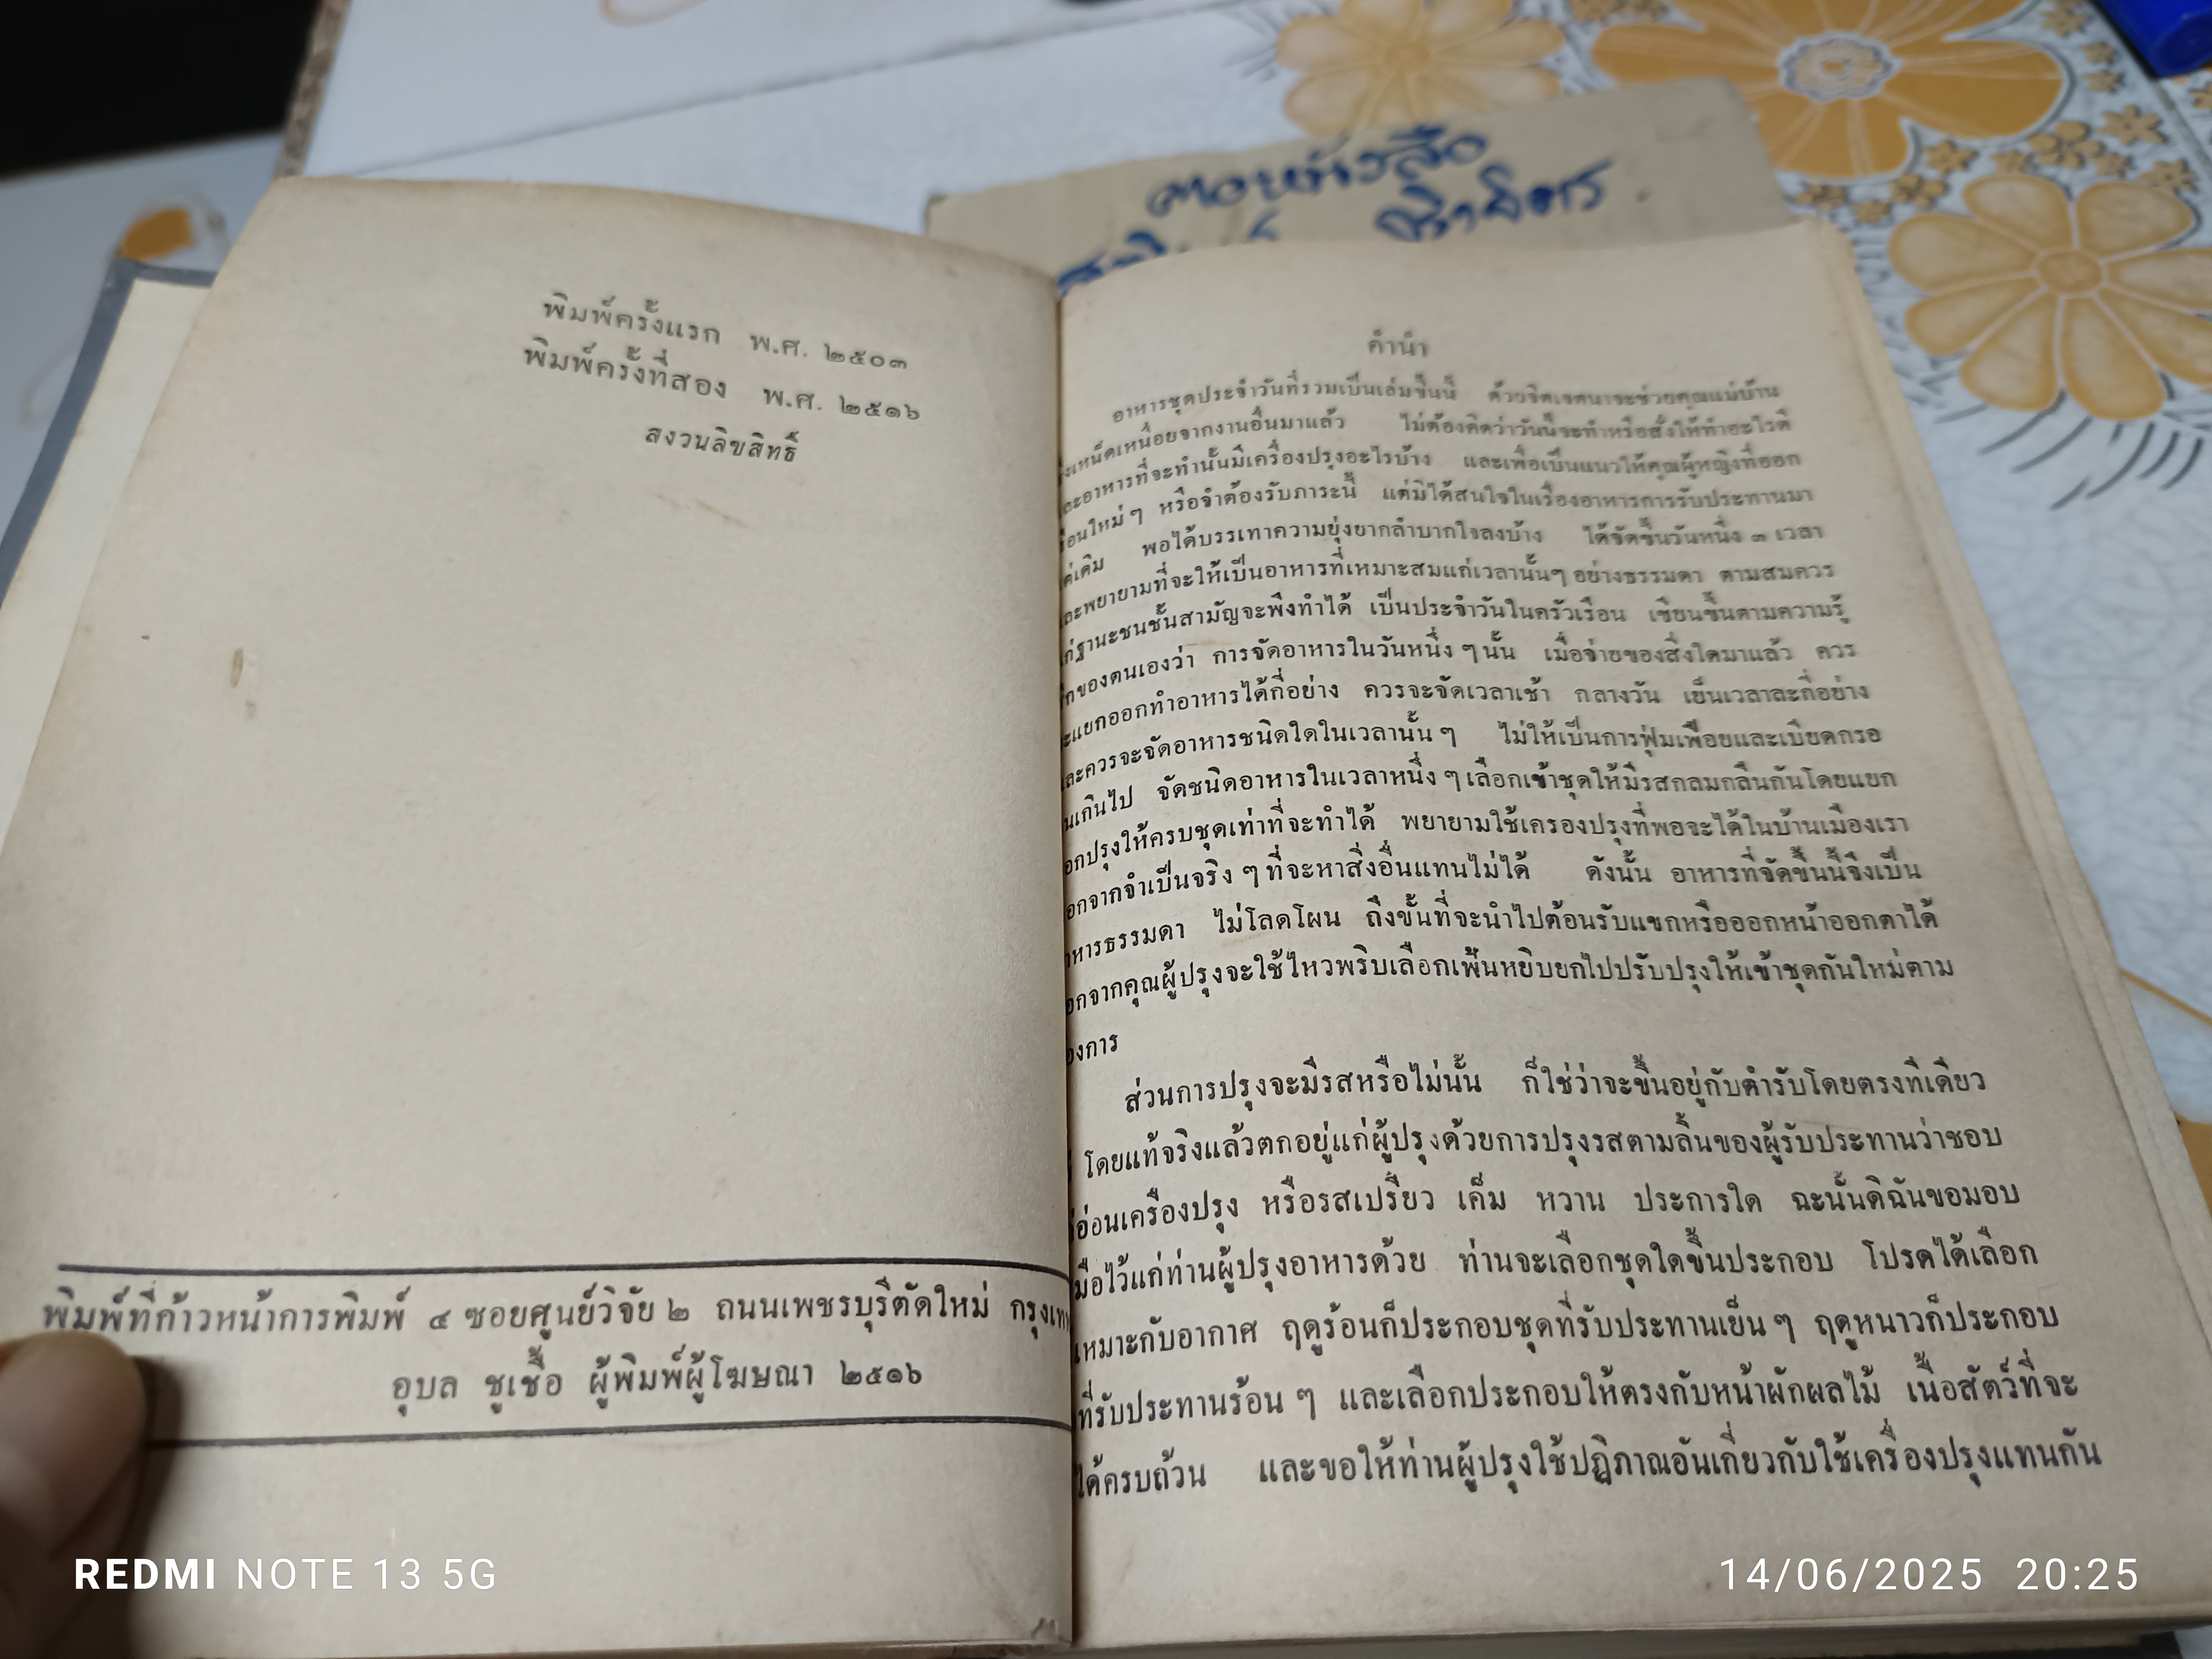 ตอหนังสือ
พิมพ์ครั้งแรก พ.ศ. ๒๕๐๓
พิมพ์ครั้งที่สอง พ.ศ. ๒๕๑๖
สงวนลิขสิทธิ์
พิมพ์ที่ก้าวหน้าการพิมพ์ ๔ ซอยศูนย์วิจัย ๒ ถนนเพชรบุรีตัดใหม่ กรุงเทพ
อุบล ชูเชื้อ ผู้พิมพ์ผู้โฆษณา ๒๕๑๖
คำนำ
อาหารชุดประจำวันที่รวมเป็นเล่มขึ้นนี้ ด้วยจิตเจตนาจะช่วยคุณแม่บ้าน
เหน็ดเหนื่อยจากงานอื่นมาแล้ว ไม่ต้องคิดว่าวันนี้จะทำหรือสั่งให้ทำอะไรดี
ละอาหารที่จะทำนั้นมีเครื่องปรุงอะไรบ้าง และเพื่อเป็นแนวให้คุณผู้หญิงที่ออก
อนใหม่ ๆ หรือจำต้องรับภาระนี้ แต่มิได้สนใจในเรื่องอาหารการรับประทานมา
ต่เดิม พอได้บรรเทาความยุ่งยากลำบากใจลงบ้าง ได้จัดขึ้นวันหนึ่ง ๓ เวลา
ละพยายามที่จะให้เป็นอาหารที่เหมาะสมแก่เวลานั้นๆ อย่างธรรมดา ตามสมควร
ก่ฐานะชนชั้นสามัญจะพึงทำได้ เป็นประจำวันในครัวเรือน เขียนขึ้นตามความรู้
กของตนเองว่า การจัดอาหารในวันหนึ่ง ๆ นั้น เมื่อจ่ายของสิ่งใดมาแล้ว ควร
ะแยกออกทำอาหารได้กี่อย่าง ควรจะจัดเวลาเช้า กลางวัน เย็นเวลาละกี่อย่าง
ละควรจะจัดอาหารชนิดใดในเวลานั้น ๆ ไม่ให้เป็นการฟุ่มเฟือยและเบียดกรอ
นเกินไป จัดชนิดอาหารในเวลาหนึ่ง ๆ เลือกเข้าชุดให้มีรสกลมกลืนกันโดยแยก
อกปรุงให้ครบชุดเท่าที่จะทำได้ พยายามใช้เครองปรุงที่พอจะได้ในบ้านเมืองเรา
อกจากจำเป็นจริง ๆ ที่จะหาสิ่งอื่นแทนไม่ได้ ดังนั้น อาหารที่จัดขึ้นนี้จึงเป็น
าหารธรรมดา ไม่โลดโผน ถึงขั้นที่จะนำไปต้อนรับแขกหรือออกหน้าออกตาได้
อกจากคุณผู้ปรุงจะใช้ไหวพริบเลือกเฟ้นหยิบยกไปปรับปรุงให้เข้าชุดกันใหม่ตาม
องการ
ส่วนการปรุงจะมีรสหรือไม่นั้น ก็ใช่ว่าจะขึ้นอยู่กับตำรับโดยตรงทีเดียว
โดยแท้จริงแล้วตกอยู่แก่ผู้ปรุงด้วยการปรุงรสตามลิ้นของผู้รับประทานว่าชอบ
อ่อนเครื่องปรุง หรือรสเปรี้ยว เค็ม หวาน ประการใด ฉะนั้นดิฉันขอมอบ
มือไว้แก่ท่านผู้ปรุงอาหารด้วย ท่านจะเลือกชุดใดขึ้นประกอบ โปรดได้เลือก
เหมาะกับอากาศ ฤดูร้อนก็ประกอบชุดที่รับประทานเย็น ๆ ฤดูหนาวก็ประกอบ
ที่รับประทานร้อน ๆ และเลือกประกอบให้ตรงกับหน้าผักผลไม้ เนื้อสัตว์ที่จะ
ได้ครบถ้วน และขอให้ท่านผู้ปรุงใช้ปฏิภาณอันเกี่ยวกับใช้เครื่องปรุงแทนกัน
REDMI NOTE 13 5G
14/06/2025 20:25